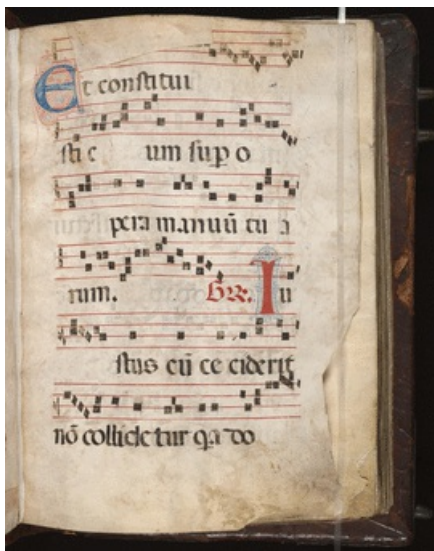 Et constitui
sti e um sup o
pera manuū tu a
rum. Grr. Iu
stus cū ce ciderit
nō collide tur qa do